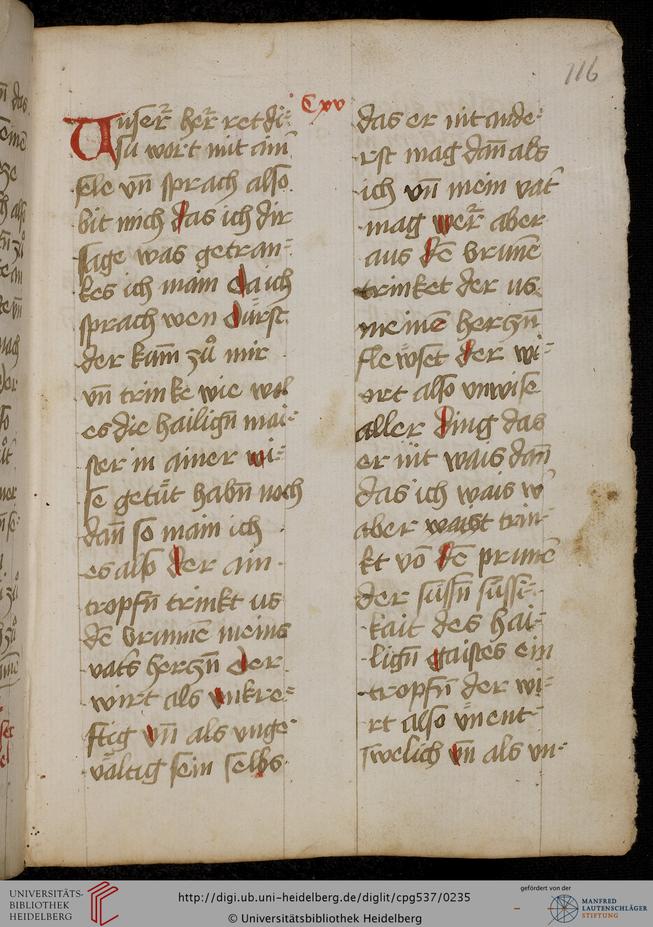 116
Cxv
Unser̄ her̄ ret di-
su wort mit ain̄
sele vn̄ sprach also
bit mich das ich dir
sage was getran-
kes ich main da ich
sprach wen dürst
der kum zů mir
vn̄ trinke wie wol
es die hailign̄ mai-
ster in ainer wi-
se getüt habn̄ noch
dan̄ so main ich
es also der ain
tropfn̄ trinkt us
dē brunnē meins
vat's herczn̄ der
wirt als vnkre-
ftig vn̄ als vnge-
valtig sein selbs
das er nit ande-
rst mag dan̄ als
ich vn̄ mein vat'
mag wer̄ aber
aus dē brunē
trinket der us
meinē herczn̄
flewset der wi-
rt also vnwise
aller ding das
er nit wais dan̄
das ich wais w'
aber waist trin-
kt vō dē prunē
der süssn̄ süssi-
kait des hai-
lign̄ gaistes ein
tropfn̄ der wi-
rt also vnent-
swelich vn̄ als vn-
UNIVERSITÄTS-
BIBLIOTHEK
HEIDELBERG
http://digi.ub.uni-heidelberg.de/diglit/cpg537/0235
© Universitätsbibliothek Heidelberg
gefördert von der
MANFRED
LAUTENSCHLÄGER
STIFTUNG